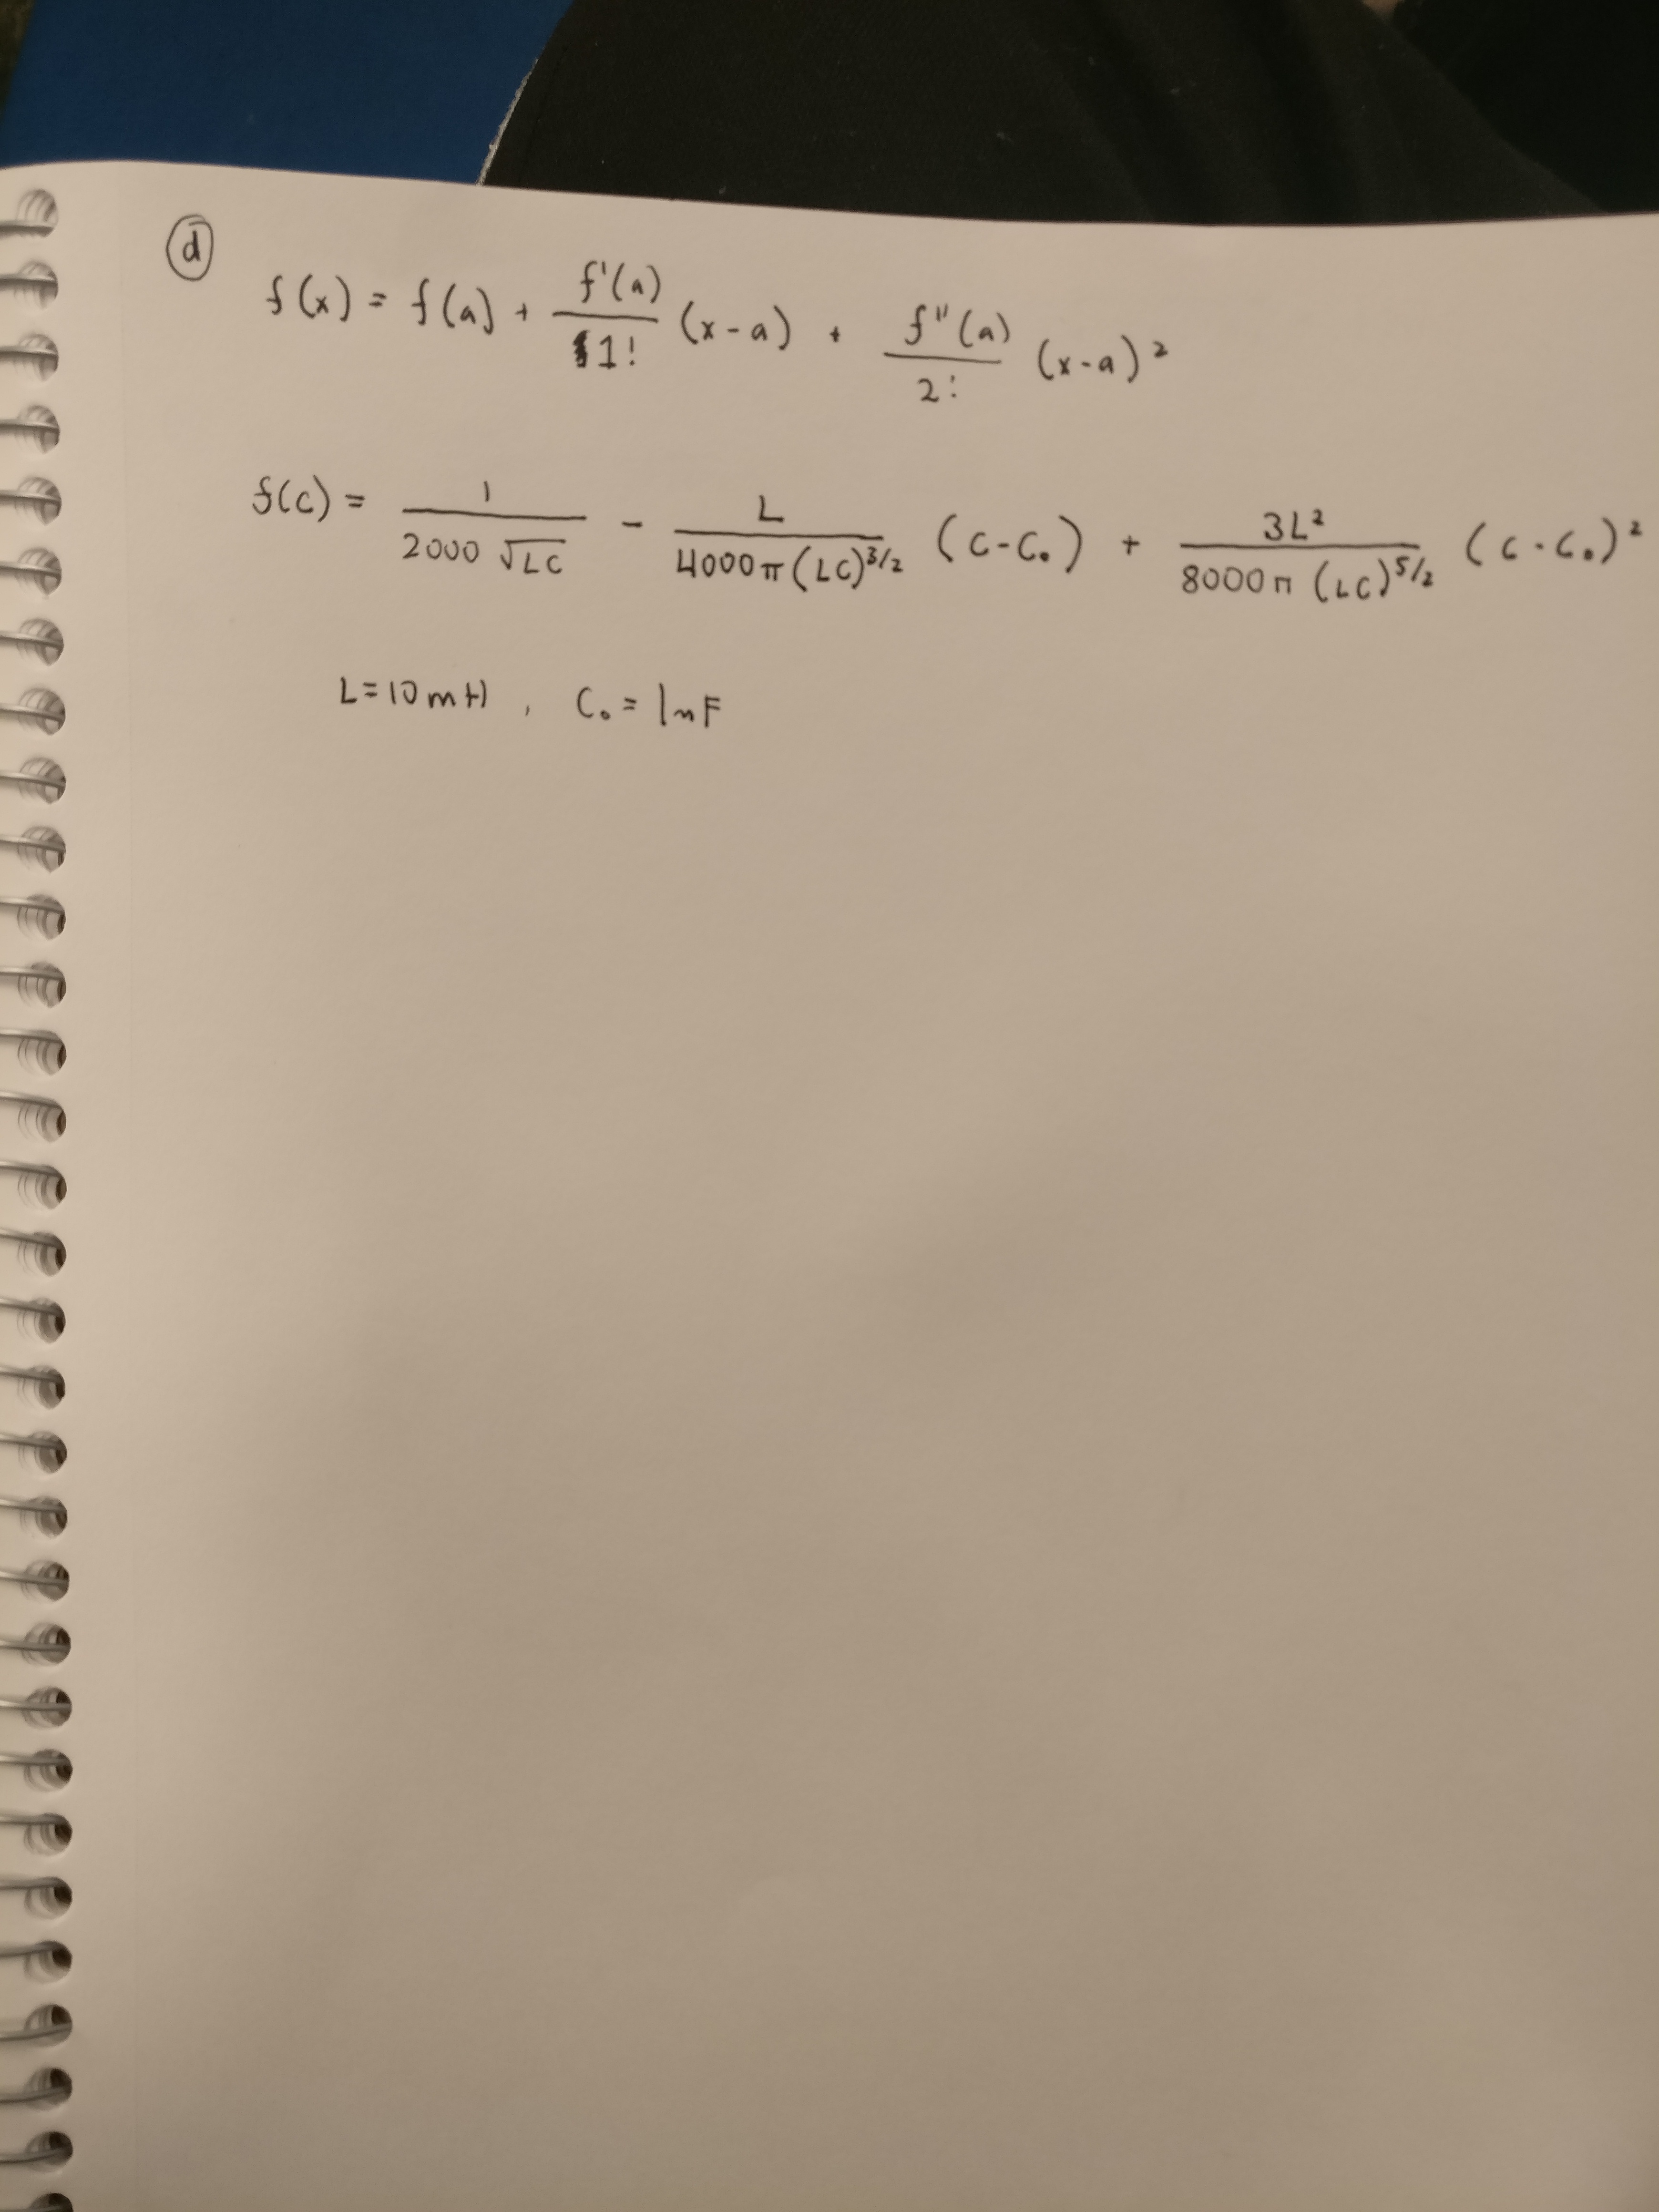 ⓓ
f(x) = f(a) + f'(a)/1! (x-a) + f''(a)/2! (x-a)²
f(C) = 1/(2000 √LC) - L/(4000π(LC)^3/2) (C-C₀) + 3L²/(8000π (LC)^5/2) (C-C₀)²
L=10mH , C₀ = 1nF